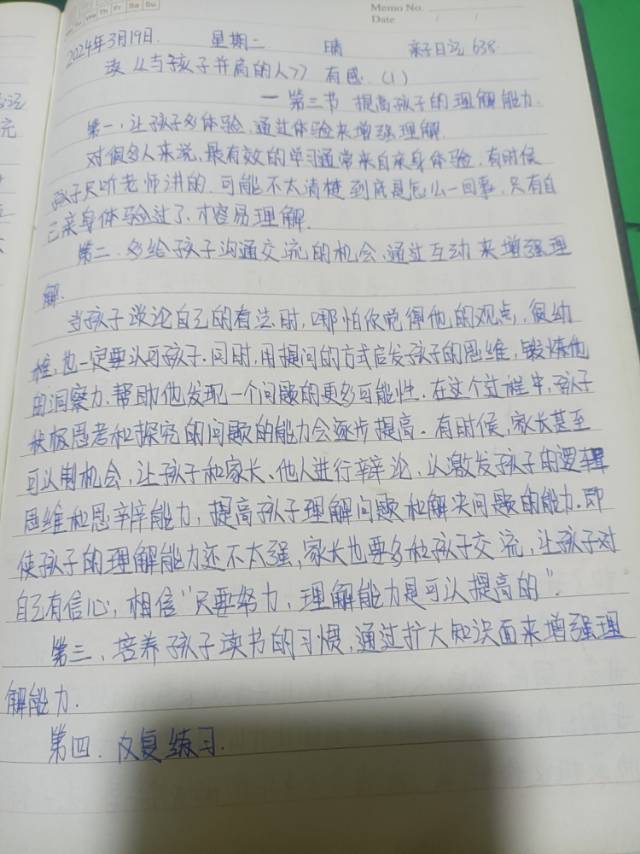 Mo Tu We Th Fr Sa Su
Memo No.
Date / /
2024年3月19日 星期二 晴 亲子日记 638
读《与孩子并肩的人》有感 (1)
— 第三节 提高孩子的理解能力.
第一,让孩子多体验,通过体验来增强理解.
对很多人来说,最有效的学习通常来自亲身体验,有时候
孩子只听老师讲的,可能不太清楚到底是怎么一回事,只有自
己亲身体验过了,才容易理解.
第二,多给孩子沟通交流的机会,通过互动来增强理
解.
当孩子谈论自己的看法时,哪怕你觉得他的观点,很幼
稚,也一定要认可孩子.同时,用提问的方式启发孩子的思维,锻炼他
的洞察力,帮助他发现一个问题的更多可能性.在这个过程中,孩子
积极思考和探究的问题的能力会逐步提高.有时候,家长甚至
可以制机会,让孩子和家长、他人进行辩论,以激发孩子的逻辑
思维和思辨能力,提高孩子理解问题和解决问题的能力.即
使孩子的理解能力还不太强,家长也要多和孩子交流,让孩子对
自己有信心,相信“只要努力,理解能力是可以提高的”.
第三,培养孩子读书的习惯,通过扩大知识面来增强理
解能力.
第四,反复练习.